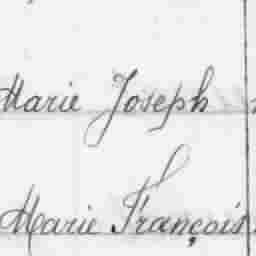 Marie Joseph
Marie François